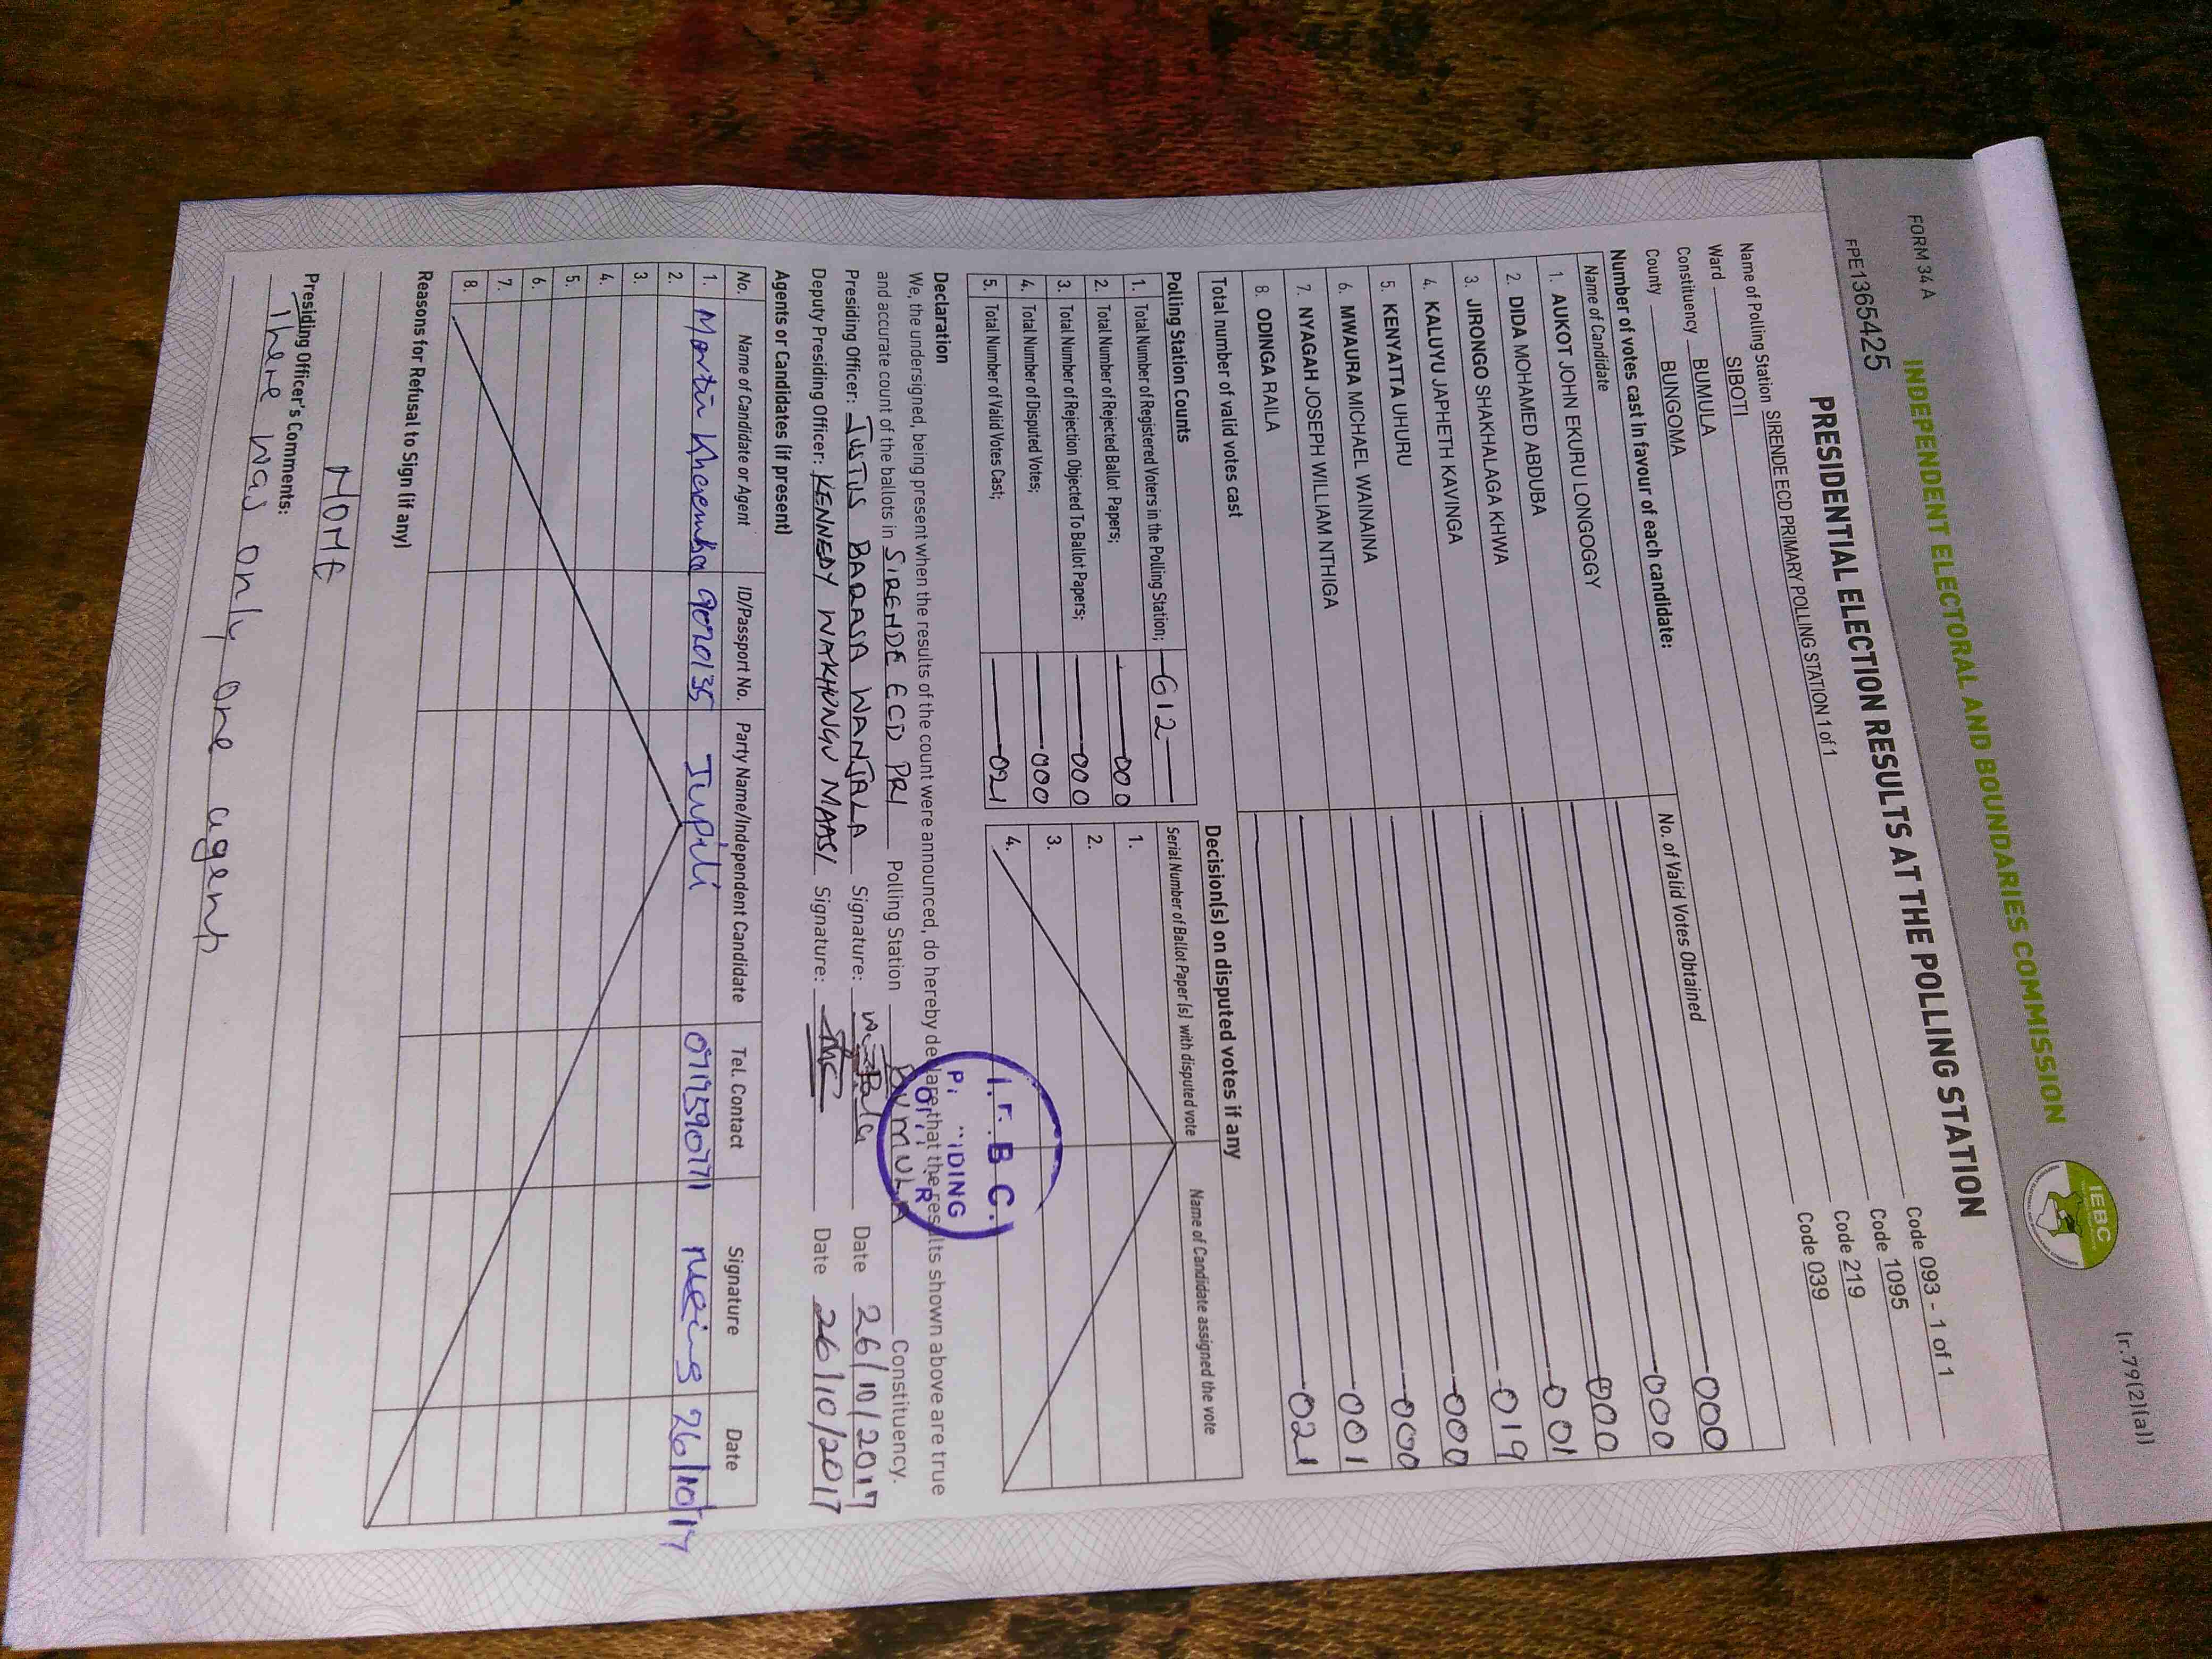 (r.79(2)(a))
FORM 34 A
INDEPENDENT ELECTORAL AND BOUNDARIES COMMISSION
IEBC
FPE1365425
PRESIDENTIAL ELECTION RESULTS AT THE POLLING STATION
Name of Polling Station SIRENDE ECD PRIMARY POLLING STATION 1 of 1 Code 093 - 1 of 1
Ward SIBOTI Code 1095
Constituency BUMULA Code 219
County BUNGOMA Code 039
Number of votes cast in favour of each candidate:
Name of Candidate No. of Valid Votes Obtained
1. AUKOT JOHN EKURU LONGOGGY 000
2. DIDA MOHAMED ABDUBA 000
3. JIRONGO SHAKHALAGA KHWA 000
4. KALUYU JAPHETH KAVINGA 001
5. KENYATTA UHURU 019
6. MWAURA MICHAEL WAINAINA 000
7. NYAGAH JOSEPH WILLIAM NTHIGA 000
8. ODINGA RAILA 001
Total number of valid votes cast 021
Polling Station Counts
1. Total Number of Registered Voters in the Polling Station; 612
2. Total Number of Rejected Ballot Papers; 000
3. Total Number of Rejection Objected To Ballot Papers; 000
4. Total Number of Disputed Votes; 000
5. Total Number of Valid Votes Cast; 021
Decision(s) on disputed votes if any
Serial Number of Ballot Paper (s) with disputed vote Name of Candidate assigned the vote
1.
2.
3.
4.
Declaration
We, the undersigned, being present when the results of the count were announced, do hereby declare that the results shown above are true
and accurate count of the ballots in SIRENDE ECD PRI Polling Station BUMULA Constituency.
Presiding Officer: JUSTUS BARASA WANJALA Signature: Date 26/10/2017
Deputy Presiding Officer: KENNEDY WAKHUNGU MAASI Signature: Date 26/10/2017
I.E.B.C.
Agents or Candidates (if present)
No. Name of Candidate or Agent ID/Passport No. Party Name/Independent Candidate Tel. Contact Signature Date
1. Martin 9070135 Jupili 0715390771 26/10/17
2.
3.
4.
5.
6.
7.
8.
Reasons for Refusal to Sign (if any)
NONE
Presiding Officer's Comments:
There was only one agent